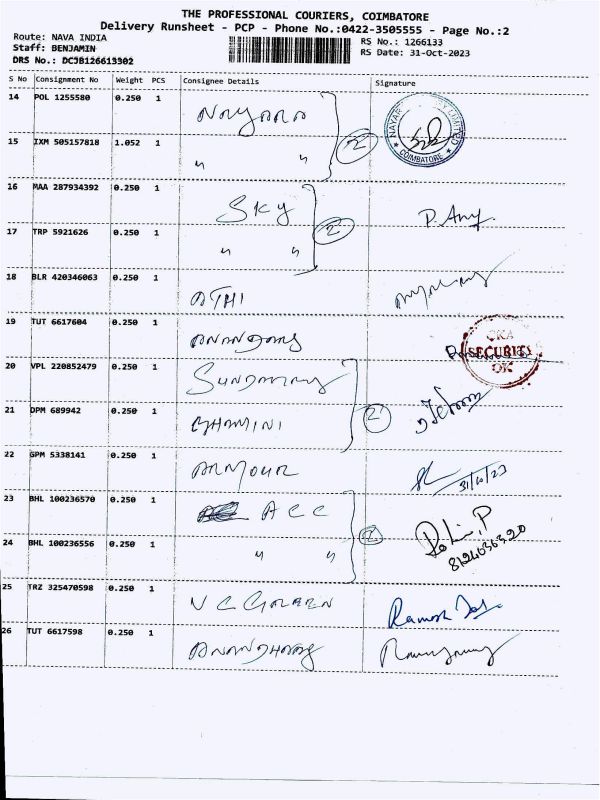 THE PROFESSIONAL COURIERS, COIMBATORE
Delivery Runsheet - PCP - Phone No.:0422-3505555 - Page No.:2
Route: NAVA INDIA
Staff: BENJAMIN
DRS No.: DCJB126613302
RS No.: 1266133
RS Date: 31-Oct-2023
S No Consignment No Weight PCS Consignee Details Signature
14 POL 1255580 0.250 1 NAYARA
2
COIMBATORE
15 IXM 505157818 1.052 1 " "
16 MAA 287934392 0.250 1 SKY
2
17 TRP 5921626 0.250 1 " "
18 BLR 420346063 0.250 1 ATHI
19 TUT 6617604 0.250 1
SECURITY
OK
20 VPL 220852479 0.250 1
2
21 DPM 689942 0.250 1 GHAMINI
22 GPM 5338141 0.250 1 ARMOUR
31/10/23
23 BHL 100236570 0.250 1 ACC
2
24 BHL 100236556 0.250 1 " "
8124636320
25 TRZ 325470598 0.250 1
Ramesh
26 TUT 6617598 0.250 1